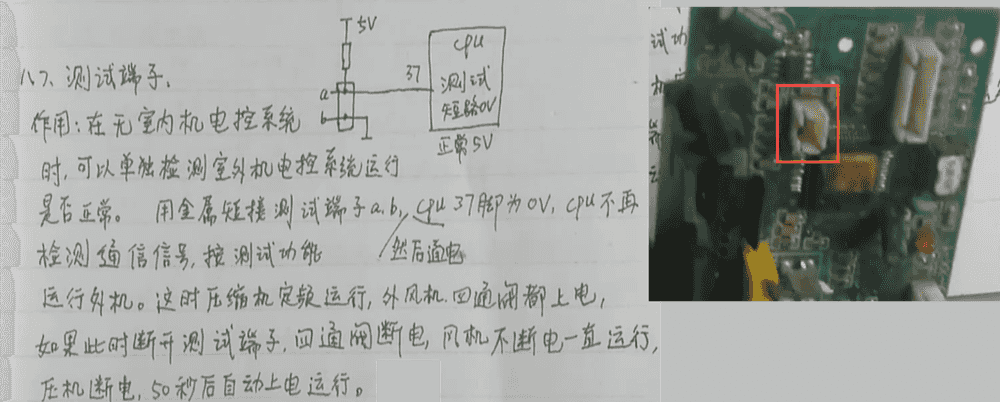 5V
cpu
37
测试
短路0V
正常5V
a
b
八7、测试端子.
作用:在无室内机电控系统
时,可以单独检测室外机电控系统运行
是否正常。 用金属短接测试端子a.b, cpu 37脚为0V, cpu不再
然后通电
检测通信信号,按测试功能
运行外机。这时压缩机定频运行,外风机.四通阀都上电,
如果此时断开测试端子.四通阀断电,风机不断电一直运行,
压机断电,50秒后自动上电运行。
试功